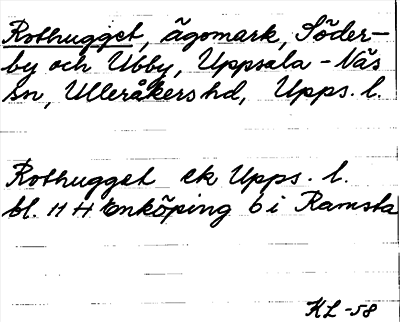 Rothugget, ägomark, Söder-
by och Ubby, Uppsala-Näs
sn, Ulleråkers hd, Upps. l.
Rothugget ek Upps. l.
bl. H H Enköping 6 i Ramsta
KL -58